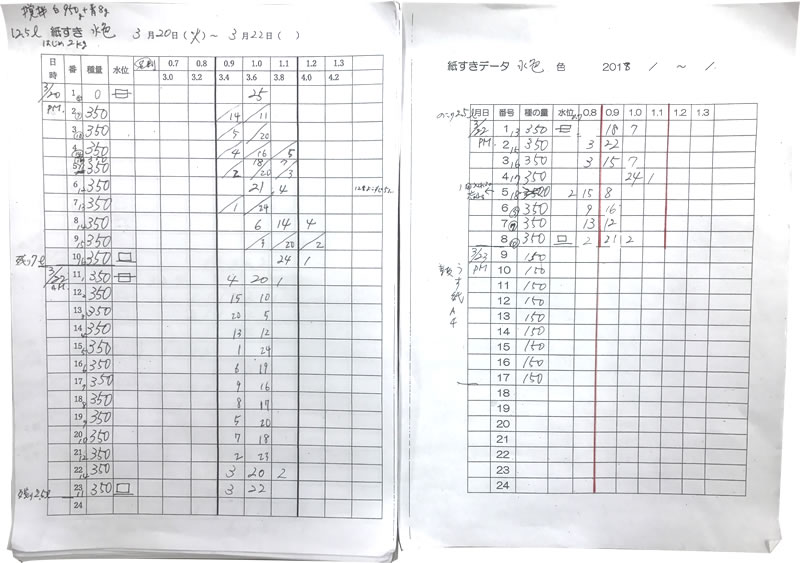 12.5ℓ 紙すき 水色 3月20日(火)~3月22日( )
はじめ2kg
日時 番 種量 水位 0.7 0.8 0.9 1.0 1.1 1.2 1.3
3.0 3.2 3.4 3.6 3.8 4.0 4.2
3/20 1 0 25
PM. 2 350 14 11
3 350 5 20
4 350 4 16 5
5 350 2 20 3
6 350 21 4
7 350 1 24
8 350 6 14 4
9 350 3 20 2
残り7ℓ 10 350 24 1
3/22 11 350 4 20 1
AM. 12 350 15 10
13 350 20 5
14 350 13 12
15 350 1 24
16 350 6 19
17 350 9 16
18 350 8 17
19 350 5 20
20 350 7 18
21 350 2 23
22 350 3 20 2
23 350 3 22
24
紙すきデータ 水色 色 2018 / ~ /
月日 番号 種の量 水位 0.8 0.9 1.0 1.1 1.2 1.3
3/22 1 13 350 18 7
PM. 2 15 350 3 22
3 16 350 3 15 7
4 17 350 24 1
5 18 350 2 15 8
6 350 9 16
7 350 13 12
8 350 2 21 2
3/23 9 150
PM 10 150
11 150
12 150
13 150
14 150
15 150
16 150
17 150
18
19
20
21
22
23
24
うす紙A4